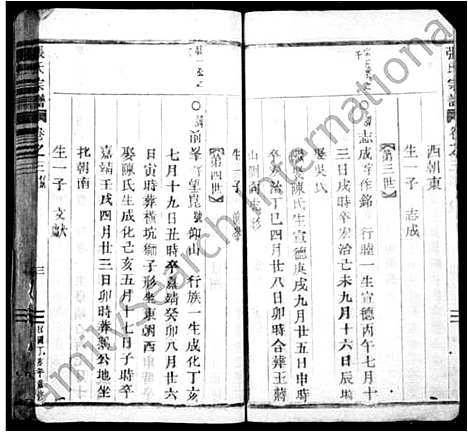 張氏宗譜
卷之三
西朝東
生一子 志成
【第三世】
志成字作銘 行睦一生宣德丙午七月十
三日戌時卒宏治己未九月十六日辰時
娶吳氏
陳氏生宣德庚戌九月廿五日申時
治己巳四月廿八日卯時合葬王蔣
山
生一子
【第四世】
前峯 望崑 號仰山 行族一生成化丁亥
七月十九日丑時卒嘉靖癸卯八月廿六
日寅時葬橫坑獅子形坐東朝西
娶陳氏生成化己亥五月十七日子時卒
嘉靖壬戌四月廿三日卯時葬親公地坐
北朝南
生一子 文獻
張氏宗譜
卷之三
三
FamilySearch International